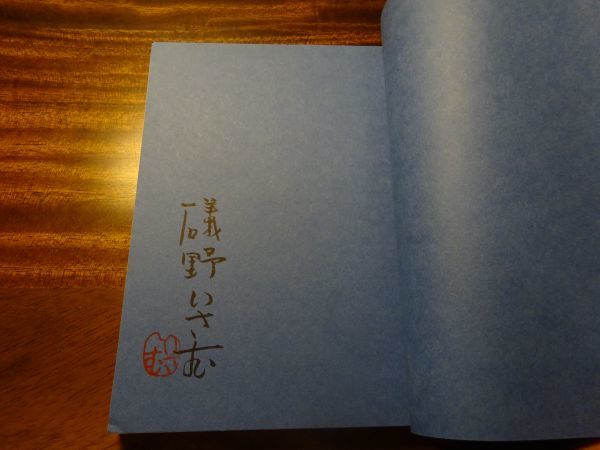 礒野いさむ